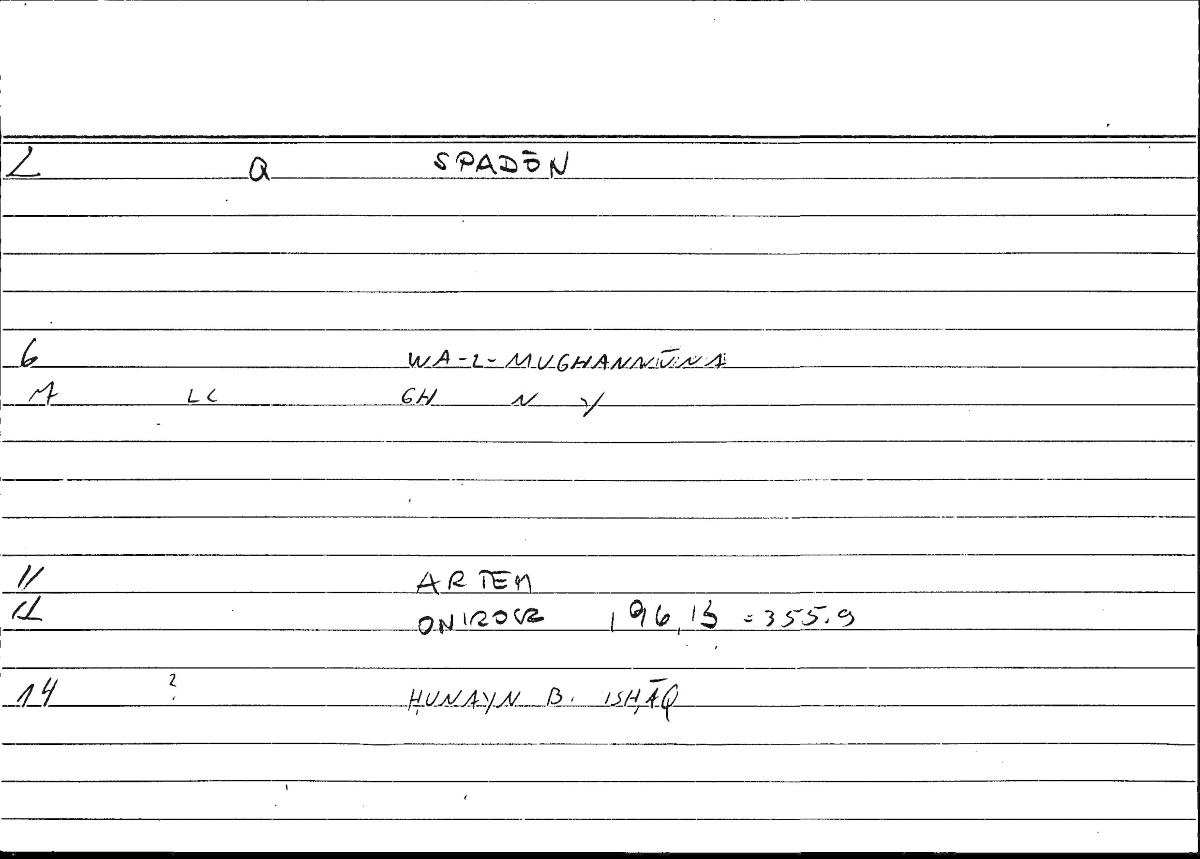 2 Q SPADŌN
6 WA-L-MUGHANNŪNA
7 LC GH N Y
11 ARTEM
12 ONIROCR 196,13 = 355.9
14 ? ḤUNAYN B. ISḤĀQ